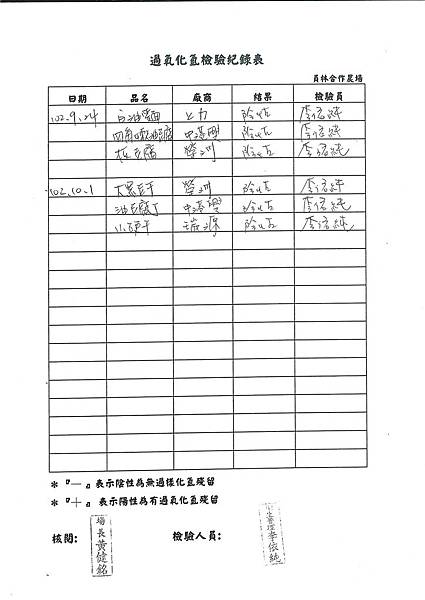 過氧化氫檢驗紀錄表
員林合作農場
日期 品名 廠商 結果 檢驗員
102.9.24 白油麵 上力 陰性 李依純
四角油豆腐 中港興 陰性 李依純
板豆腐 榮洲 陰性 李依純
102.10.1 大黑豆干 榮洲 陰性 李依純
油豆腐丁 中港興 陰性 李依純
小豆干 瑞源 陰性 李依純
*『一』表示陰性為無過樣化氫殘留
*『十』表示陽性為有過氧化氫殘留
核閱: 場長黃健銘 檢驗人員: 李依純